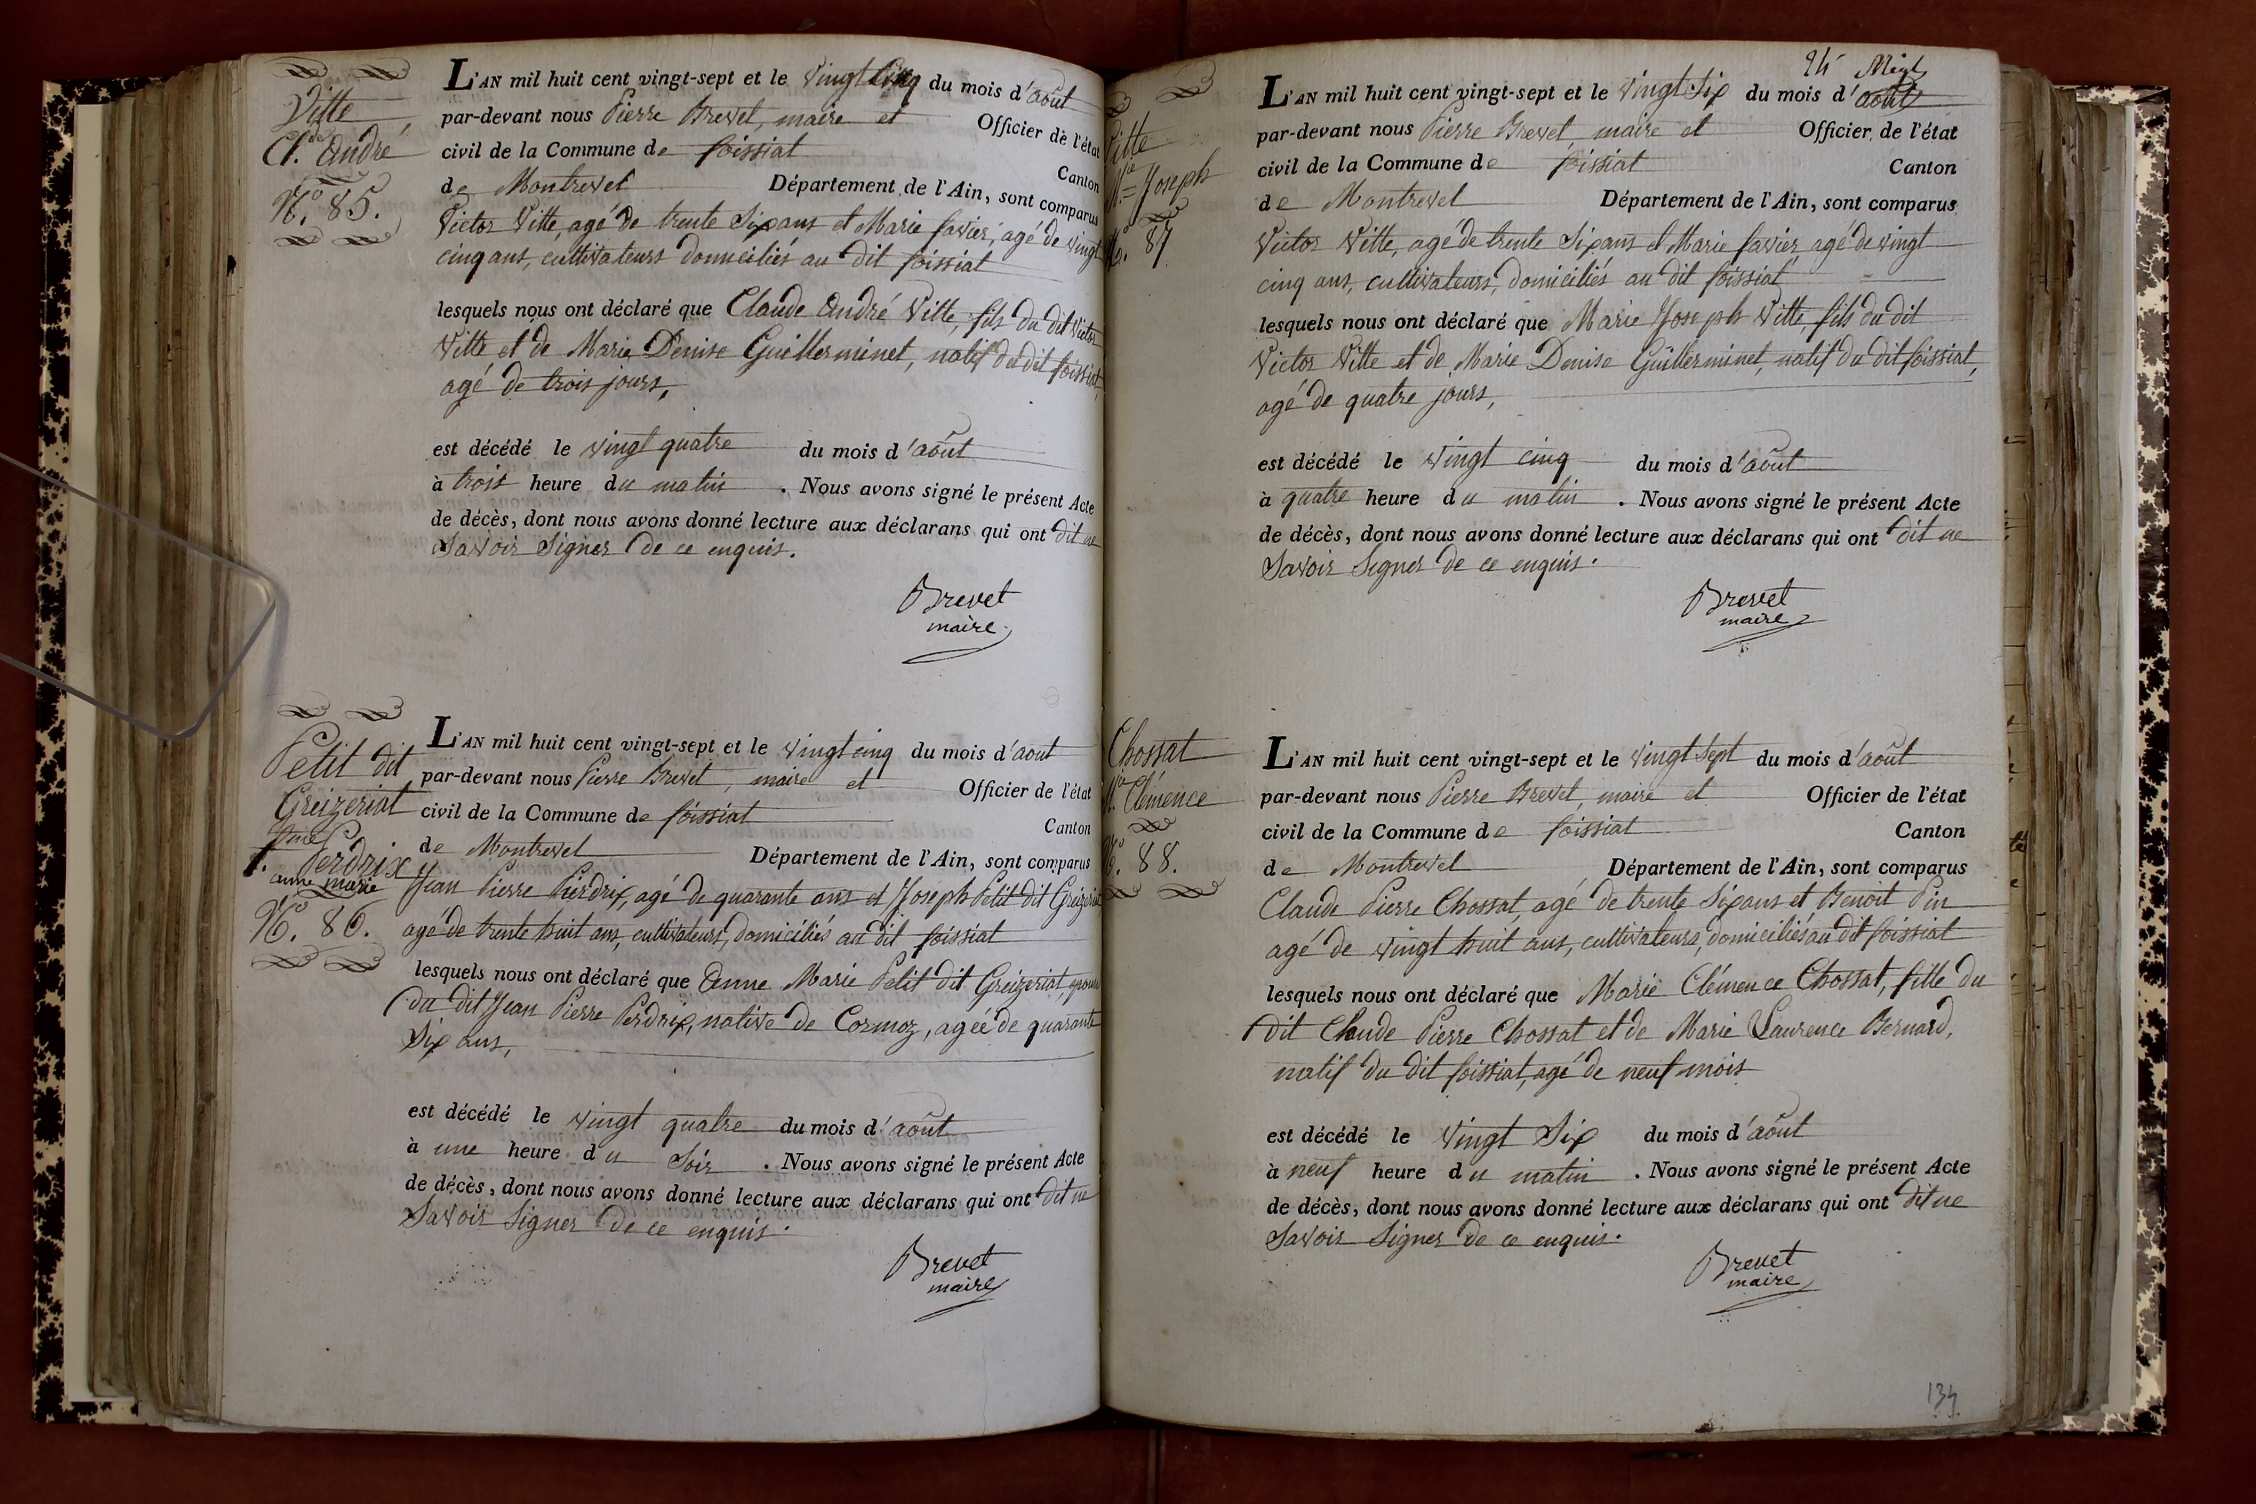 Vitte
Cl.de André
N.o 85.
L'AN mil huit cent vingt-sept et le vingt cinq du mois d'août
par-devant nous Pierre Brevet, maire et Officier de l'état
civil de la Commune de foissiat Canton
de Montrevel Département de l'Ain, sont comparus
Victor Vitte, agé de trente Six ans et Marie favier, agé de vingt
cinq ans, cultivateurs domiciliés au dit foissiat
lesquels nous ont déclaré que Claude André Vitte, fils du dit Victor
Vitte et de Marie Denise Guillerminet, natif du dit foissiat,
agé de trois jours,
est décédé le vingt quatre du mois d'août
à trois heure du matin . Nous avons signé le présent Acte
de décès, dont nous avons donné lecture aux déclarans qui ont dit ne
Savoir Signer de ce enquis.
Brevet
maire
Petit dit
Greizeriat
f.me Perdrix
anne marie
N.o 86.
L'AN mil huit cent vingt-sept et le vingt cinq du mois d'aout
par-devant nous Pierre Brevet, maire et Officier de l'état
civil de la Commune de foissiat Canton
de Montrevel Département de l'Ain, sont comparus
Jean Pierre Perdrix, agé de quarante ans et Joseph Petit dit Greizeriat
agé de trente huit ans, cultivateurs, domiciliés au dit foissiat
lesquels nous ont déclaré que Anne Marie Petit dit Greizeriat, epouse
du dit Jean Pierre Perdrix, native de Cormoz, agée de quarante
Six ans,
est décédé le vingt quatre du mois d'août
à une heure du Soir . Nous avons signé le présent Acte
de décès, dont nous avons donné lecture aux déclarans qui ont dit ne
Savoir Signer de ce enquis.
Brevet
maire
Vitte
M.ie Joseph
N.o 87
L'AN mil huit cent vingt-sept et le vingt Six du mois d'août
par-devant nous Pierre Brevet, maire et Officier de l'état
civil de la Commune de foissiat Canton
de Montrevel Département de l'Ain, sont comparus
Victor Vitte, agé de trente Six ans et Marie favier, agé de vingt
cinq ans, cultivateurs, domiciliés au dit foissiat
lesquels nous ont déclaré que Marie Joseph Vitte, fils du dit
Victor Vitte et de Marie Denise Guillerminet, natif du dit foissiat,
agé de quatre jours,
est décédé le vingt cinq du mois d'août
à quatre heure du matin . Nous avons signé le présent Acte
de décès, dont nous avons donné lecture aux déclarans qui ont dit ne
Savoir Signer de ce enquis.
Brevet
maire
Chossat
M.ie Clémence
N.o 88.
L'AN mil huit cent vingt-sept et le vingt Sept du mois d'août
par-devant nous Pierre Brevet, maire et Officier de l'état
civil de la Commune de foissiat Canton
de Montrevel Département de l'Ain, sont comparus
Claude Pierre Chossat, agé de trente Six ans et Benoit Pin
agé de vingt huit ans, cultivateurs, domiciliés au dit foissiat
lesquels nous ont déclaré que Marie Clémence Chossat, fille du
dit Claude Pierre Chossat et de Marie Laurence Bernard,
natif du dit foissiat, agé de neuf mois
est décédé le vingt Six du mois d'août
à neuf heure du matin . Nous avons signé le présent Acte
de décès, dont nous avons donné lecture aux déclarans qui ont dit ne
Savoir Signer de ce enquis.
Brevet
maire